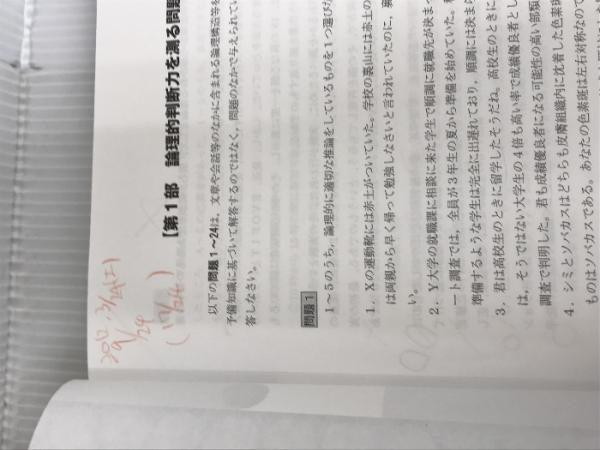 【第1部 論理的判断力を測る問題
以下の問題1～24は、文章や会話等のなかに含まれる論理構造等を
予備知識に基づいて解答するのではなく、問題のなかで与えられてい
答しなさい。
問題1
1～5のうち、論理的に適切な推論をしているものを1つ選びな
1．Xの運動靴には赤土がついていた。学校の裏山には赤土の
は両親から早く帰って勉強しなさいと言われていたのに、裏
い。
2．Y大学の就職課に相談に来た学生で順調に就職先が決まっ
ート調査では、全員が3年生の夏から準備を始めていた。
準備するような学生は完全に出遅れており、順調には決まら
3．君は高校生のときに留学したそうだね。高校生のときに
は、そうではない大学生の4倍も高い率で成績優良者とし
調査で判明した。君も成績優良者になる可能性の高い部類
4．シミとソバカスはどちらも皮膚組織内に沈着した色素斑
ものはソバカスである。あなたの色素斑は左右対称なので